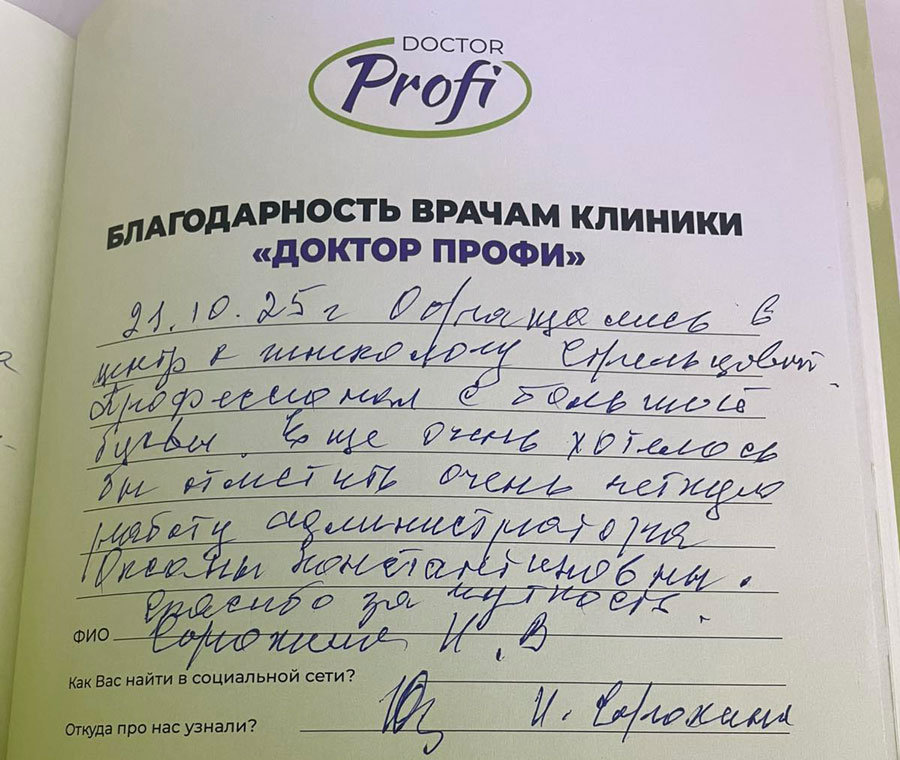 DOCTOR
Profi
БЛАГОДАРНОСТЬ ВРАЧАМ КЛИНИКИ
«ДОКТОР ПРОФИ»
21.10.25г Обращались в
центр к гинекологу Стрельцовой.
Профессионал с большой
буквы. Еще очень хотелось
бы отметить очень четкую
работу администратора
Оксаны Константиновны.
Спасибо за чуткость.
ФИО Сорокина И.В
Как Вас найти в социальной сети?
Откуда про нас узнали? И. Сорокина